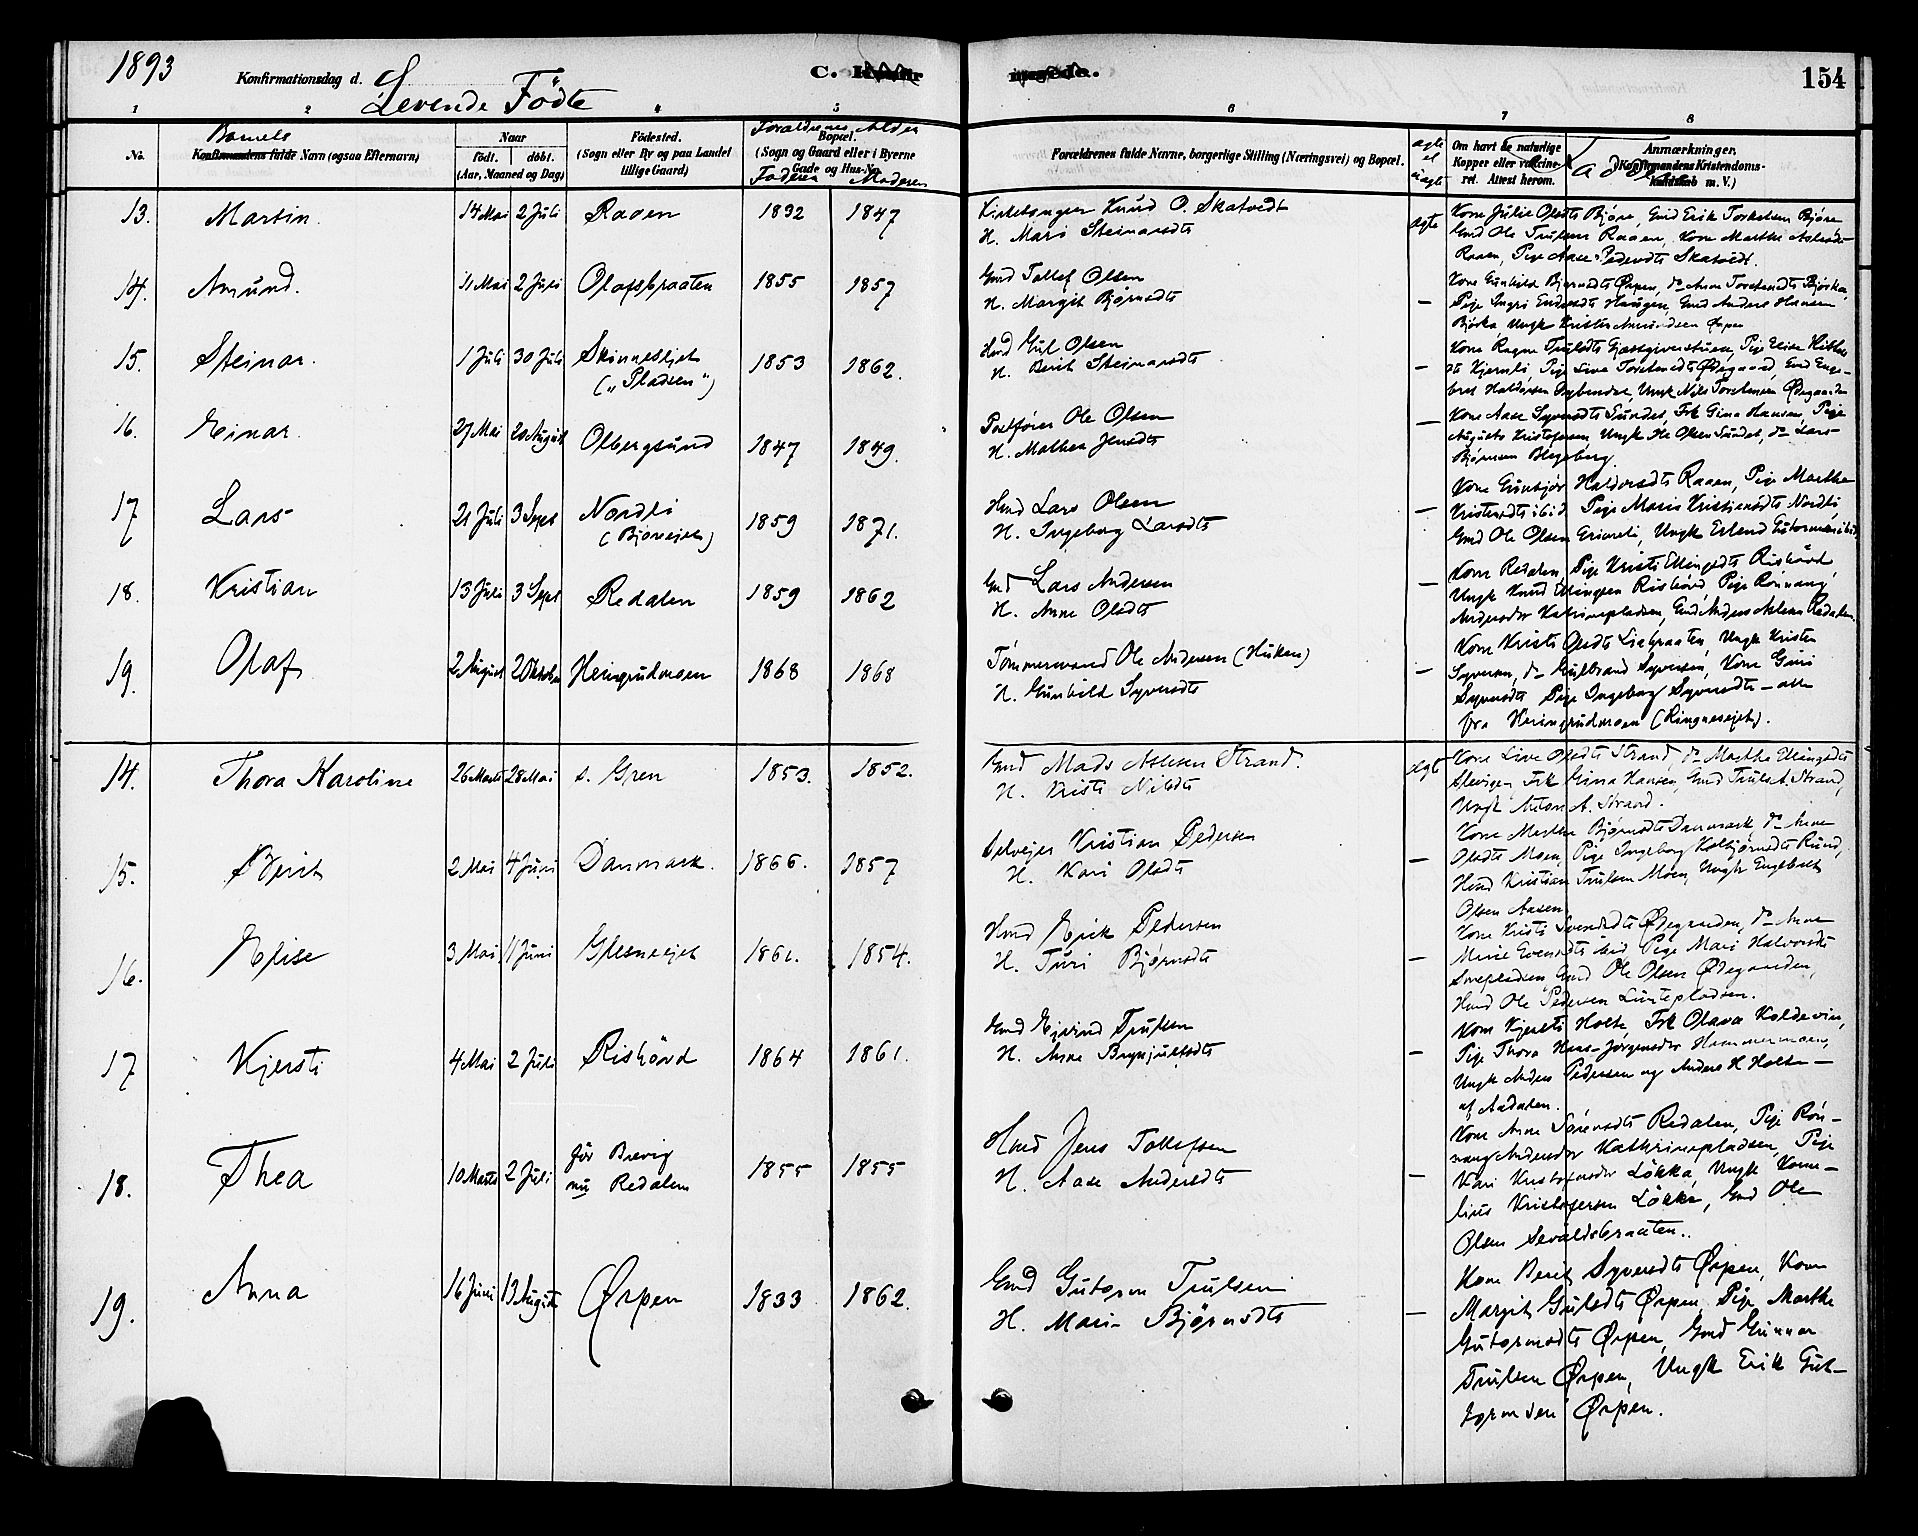 1893
Konfirmationsdag d.
Levende Födte
C.
154
1 2 4 5 6 7 8
No.
Barnets
Konfirmandens fulde Navn (ogsaa Efternavn)
Naar
födt. döbt.
(Aar, Maaned og Dag)
Födested.
(Sogn eller By og paa Landet tillige Gaard)
Forældrenes Alder
Bopæl
(Sogn og Gaard eller i Byerne Gade og Hus-No.
Faderen Moderen
Forældrenes fulde Navne, borgerlige Stilling (Næringsvei) og Bopæl.
ægte el uægte
Om havt de naturlige Kopper eller vakcineret. Attest herom.
Anmærkninger.
(Konfirmandens Kristendomskundskab m. V.)
13. Martin. 14 Mai 2 Juli Raaen 1832 1847
Kirkesanger Knud O. Skatvedt
H. Mari Steinarsdt
ægte
Kone Julie Olsdt Björe, Gmd Erik Torkelsen Björe
Gmd Ole Trulsen Raaen, Kone Marthe Aslesdt
Raaen, Pige Aase Pedersdt Skatvedt.
14. Amund. 11 Mai 2 Juli Olafsbraaten 1855 1857
Gmd Tollef Olsen
H. Margit Björnsdt
—
Kone Gunhild Bjørnsdt Ørpen, do Anne Torstensdt Björke,
Pige Ingri Endresdt Haugen, Gmd Anders Hansen
Björke, Ungk Kristen Amundsen Ørpen
15. Steinar. 1 Juli 30 Juli Skinnesejet („Pladsen") 1853 1862.
Hmd Gul Olsen
H. Berit Steinarsdt
—
Kone Ragne Trulsdt Gjæstgiverstuen, Pige Elise
Kjernli Pige Live Torstensdt Ødegaard, Gmd Enge-
bret Haldorsen Ungk Nils Torstensen Ødegaarden
16. Einar. 27 Mai 20 August Olbergsund 1847 1849.
Postfører Ole Olsen
H. Mathea Jensdt
—
Kone Aase Syversdt Sundet, Frk Gina Hansen, Pige
Augusta Kristofersen, Ungk Ole Olsen Sundet, do Lars
Björnsen
17 Lars 21 Juli 3 Sept Nordli (Björeejet) 1859 1871.
Hmd Lars Olsen
H. Ingeborg Larsdt
—
Kone Gunbjör Haldorsdt Raaen, Pige Marthe
Kristensdt ibid Pige Maria Kristiansdt Nordli,
Gmd Ole Olsen Ungk Erland Gutormsen ibid
18. Kristian 13 Juli 3 Sept Redalen 1859 1862
Gmd Lars Andersen
H. Anne Olsdt
—
Kone Redalen, Pige Kristi Ellingsdt Rishövd
Ungk Knud Ellingsen Rishövd, Pige Rönnaug
Andersdr Katrinepladsen, Gmd Anders Aslesen Redalen.
19. Olaf 2 August 2 Oktober Heimgrudmoen 1868 1868
Tømmermand Ole Andersen (Huken)
H. Gunhild Syversdt
—
Kone Kristi Olsdt Liabraaten, Ungk Kristen
Syversen, do Gulbrand Syversen, Kone Guri
Syversdt Pige Ingeborg Syversdt — alle
fra Heimgrudmoen (Ringneseiet).
14. Thora Karoline 26 Marts 28 Mai s. Gren 1853. 1852.
Gmd Mads Aslesen Strand.
H. Kristi Nilsdt
ægte
Kone Live Olsdt Strand, do Marthe Ellingsdt
Slevigen, Frk Gina Hansen, Gmd Truls A. Strand,
Ungk Anton A. Strand.
15. Berit 2 Mai 4 Juni Danmark. 1866. 1857
Selvejer Kristian Pedersen
H. Kari Olsdt
—
Kone Marthe Bjørnsdt Danmark, do Anne
Olsdt Moen, Pige Ingeborg Kolbjørnsdt Rund,
Hmd Kristian Trulsen Moen, Ungk Engebret
Olsen Aasen
16. Elise 3 Mai 11 Juni Glesneejet 1861. 1854.
Hmd Erik Pedersen
H. Turi Björnsdt
—
Kone Kristi Svensdt Ødegaarden, do Anne
Marie Evensdt ibid, Pige Mari Halvorsdt
Gmd Ole Olsen Ødegaarden,
Hmd Ole Pedersen Luntepladsen.
17 Kjersti 4 Mai 2 Juli Rishövd 1864 1861.
Gmd Ejvind Trulsen
H. Anne Brynjulfsdt
—
Kone Kjersti Holte, Frk Olava Koldevin,
Pige Thora Hans-Jørgensdr Hammermoen,
Ungk Anders Pedersen og Anders H Holte —
af Aadalen.
18. Thea 10 Marts 2 Juli för Brevig nu Redalen 1855 1855
Hmd Jens Tollefsen
H. Aase Andersdt
—
Kone Anne Sørensdt Redalen, Pige Rön-
naug Andersdr Kathrinepladsen, Pige
Kari Kristofersdr Lökka, Ungk Korne-
lius Kristofersen Lökka, Gmd Ole
Olsen Sevaldsbraaten..
19. Anna 16 Juni 13 August Ørpen 1833 1862.
Gmd Gutorm Trulsen
H. Mari Bjørnsdt
—
Kone Berit Syversdt Ørpen, Kone
Margit Gulsdt Ørpen, Pige Marthe
Gutormsdt Ørpen, Gmd Gunnar
Trulsen Ørpen, Ungk Erik Gut-
tormsen Ørpen.